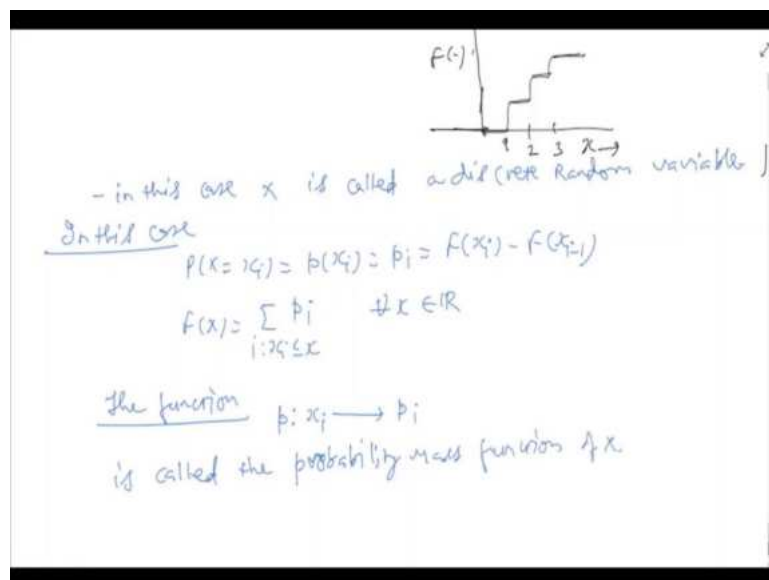 F(·)
1 2 3 x→
- in this case x is called a discrete Random variable
In this case
P(X = xi) = p(xi) = pi = F(xi) - F(xi-1)
F(x) = Σ pi ∀ x ∈ IR
i: xi ≤ x
The function p: xi ⟶ pi
is called the probability mass function of x